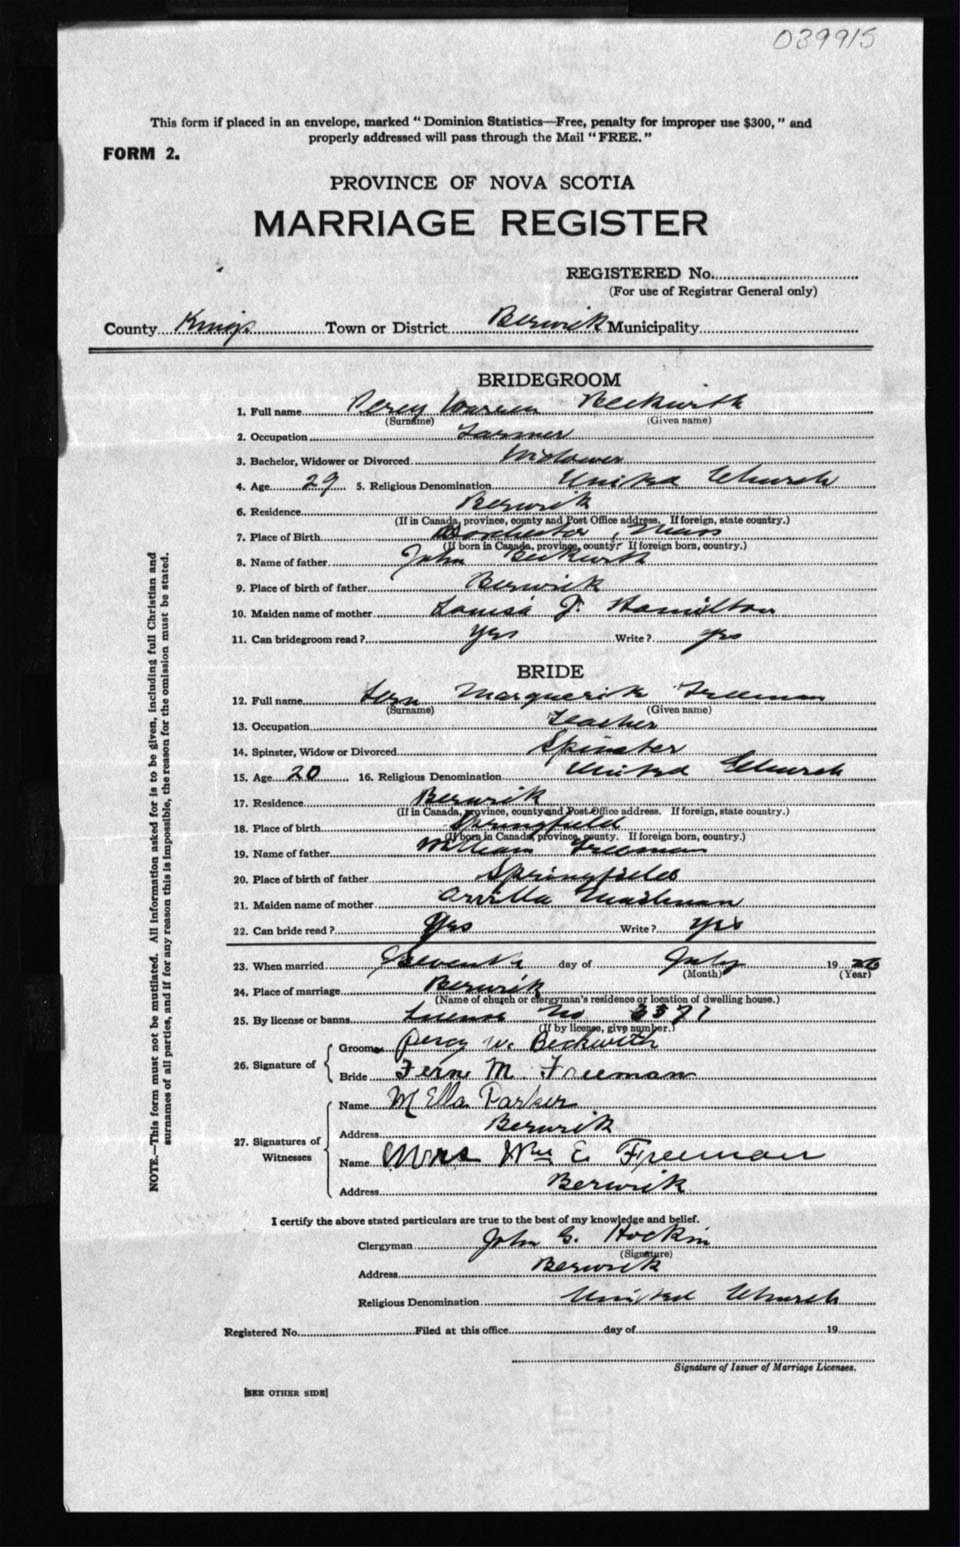 039915
This form if placed in an envelope, marked "Dominion Statistics—Free, penalty for improper use $300," and
properly addressed will pass through the Mail "FREE."
FORM 2.
PROVINCE OF NOVA SCOTIA
MARRIAGE REGISTER
REGISTERED No.
(For use of Registrar General only)
County Kings Town or District Berwick Municipality
BRIDEGROOM
1. Full name Percy Warren Beckwith
(Surname) (Given name)
2. Occupation Farmer
3. Bachelor, Widower or Divorced Widower
4. Age 29 5. Religious Denomination United Church
6. Residence Berwick
(If in Canada, province, county and Post Office address. If foreign, state country.)
7. Place of Birth Dorchester, Mass
(If born in Canada, province, county. If foreign born, country.)
8. Name of father John Beckwith
9. Place of birth of father Berwick
10. Maiden name of mother Louisa J. Hamilton
11. Can bridegroom read? yes Write? yes
BRIDE
12. Full name Fern Marguerite Freeman
(Surname) (Given name)
13. Occupation Teacher
14. Spinster, Widow or Divorced Spinster
15. Age 20 16. Religious Denomination United Church
17. Residence Berwick
(If in Canada, province, county and Post Office address. If foreign, state country.)
18. Place of birth Springfield
(If born in Canada, province, county. If foreign born, country.)
19. Name of father William Freeman
20. Place of birth of father Springfield
21. Maiden name of mother Orvilla
22. Can bride read? yes Write? yes
23. When married Seventh day of July 19 26
(Month) (Year)
24. Place of marriage Berwick
(Name of church or clergyman's residence or location of dwelling house.)
25. By license or banns License No 6571
(If by license, give number.)
26. Signature of
Groom Percy W. Beckwith
Bride Fern M. Freeman
27. Signatures of Witnesses
Name M Ella Parker
Address Berwick
Name Mrs Wm E Freeman
Address Berwick
I certify the above stated particulars are true to the best of my knowledge and belief.
Clergyman John G. Hockin
(Signature)
Address Berwick
Religious Denomination United Church
Registered No. Filed at this office day of 19
Signature of Issuer of Marriage Licenses.
[SEE OTHER SIDE]
NOTE.—This form must not be mutilated. All information asked for is to be given, including full Christian and
surnames of all parties, and if for any reason this is impossible, the reason for the omission must be stated.